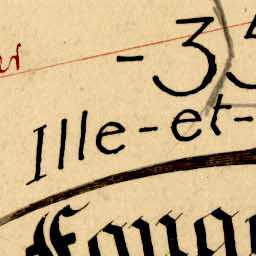 -35
Ille-et-
Foug